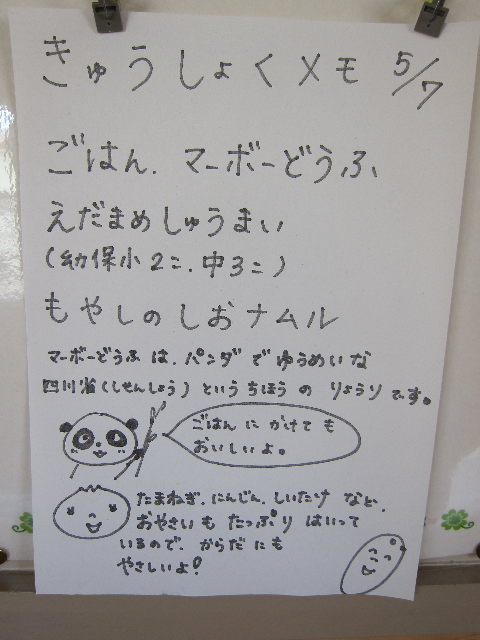 きゅうしょくメモ 5/7
ごはん、マーボーどうふ
えだまめしゅうまい
(幼保小2こ、中3こ)
もやしのしおナムル
マーボーどうふは、パンダでゆうめいな
四川省(しせんしょう)というちほうのりょうりです。
ごはんにかけても
おいしいよ。
たまねぎ、にんじん、しいたけなど、
おやさいもたっぷりはいって
いるので、からだにも
やさしいよ!